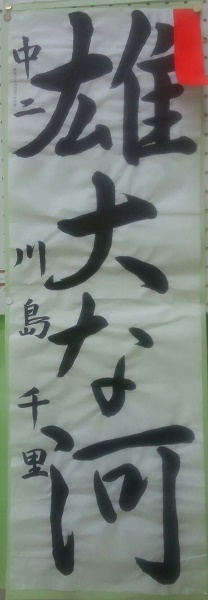 雄大な河
中二 川島千里